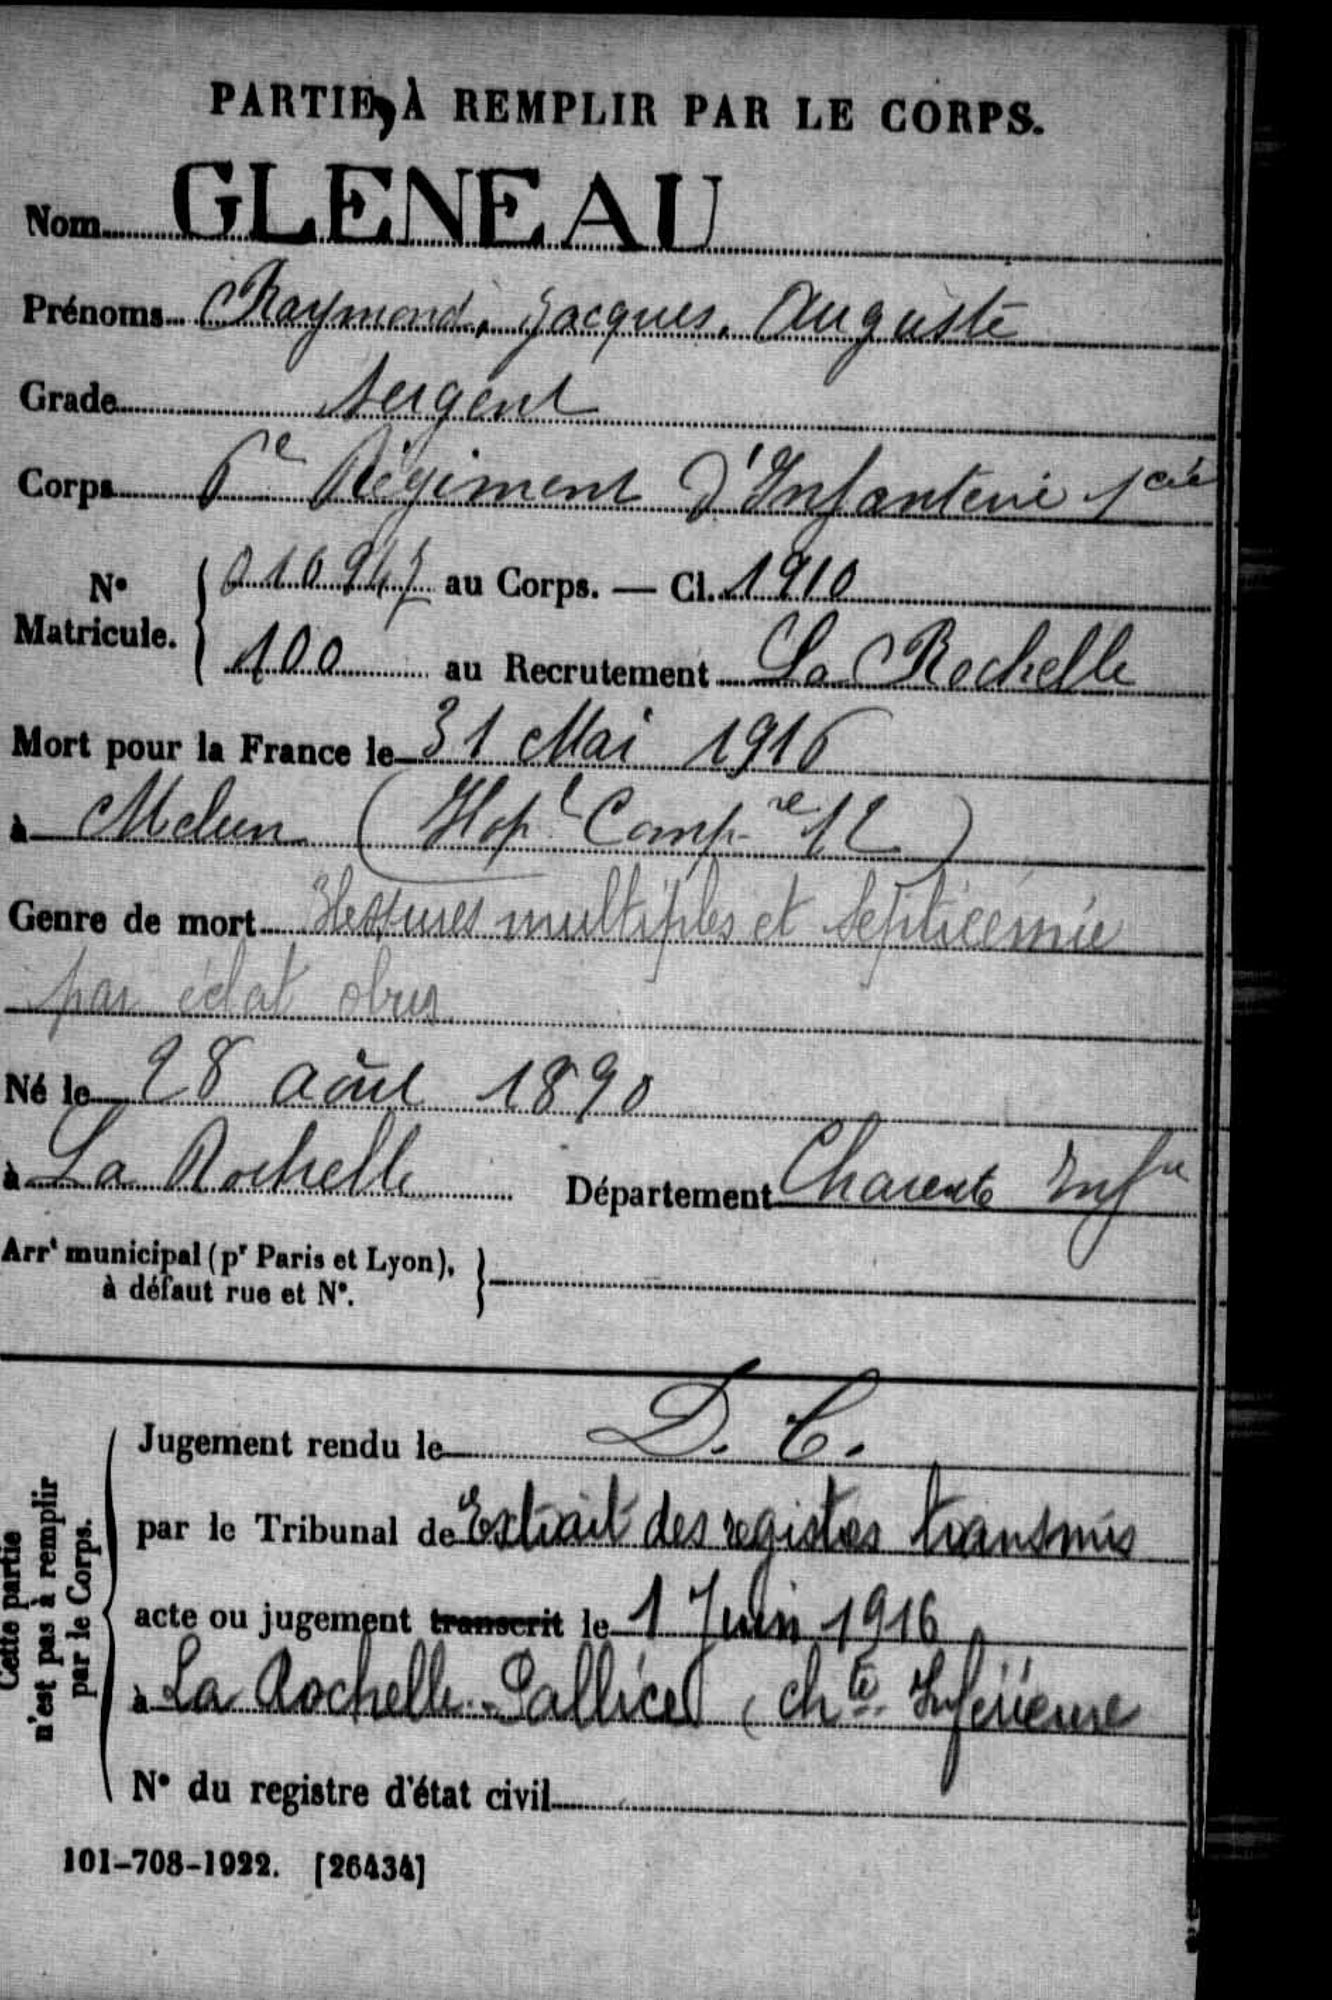 PARTIE À REMPLIR PAR LE CORPS.
Nom GLENEAU
Prénoms Raymond, Jacques, Auguste
Grade Sergent
Corps 6e Régiment d'Infanterie 1 cie
N° Matricule. 010947 au Corps. — Cl. 1910
100 au Recrutement La Rochelle
Mort pour la France le 31 Mai 1916
à Melun (Hopl Compre 12)
Genre de mort Blessures multiples et septicémie
par éclat obus
Né le 28 août 1890
à La Rochelle Département Charente Infre
Arrt municipal (pr Paris et Lyon),
à défaut rue et N°.
Cette partie
n'est pas à remplir
par le Corps.
Jugement rendu le D. C.
par le Tribunal de Extrait des registres transmis
acte ou jugement transcrit le 1 Juin 1916
à La Rochelle-Pallice (Chte Inférieure
N° du registre d'état civil
101-708-1922. [26434]